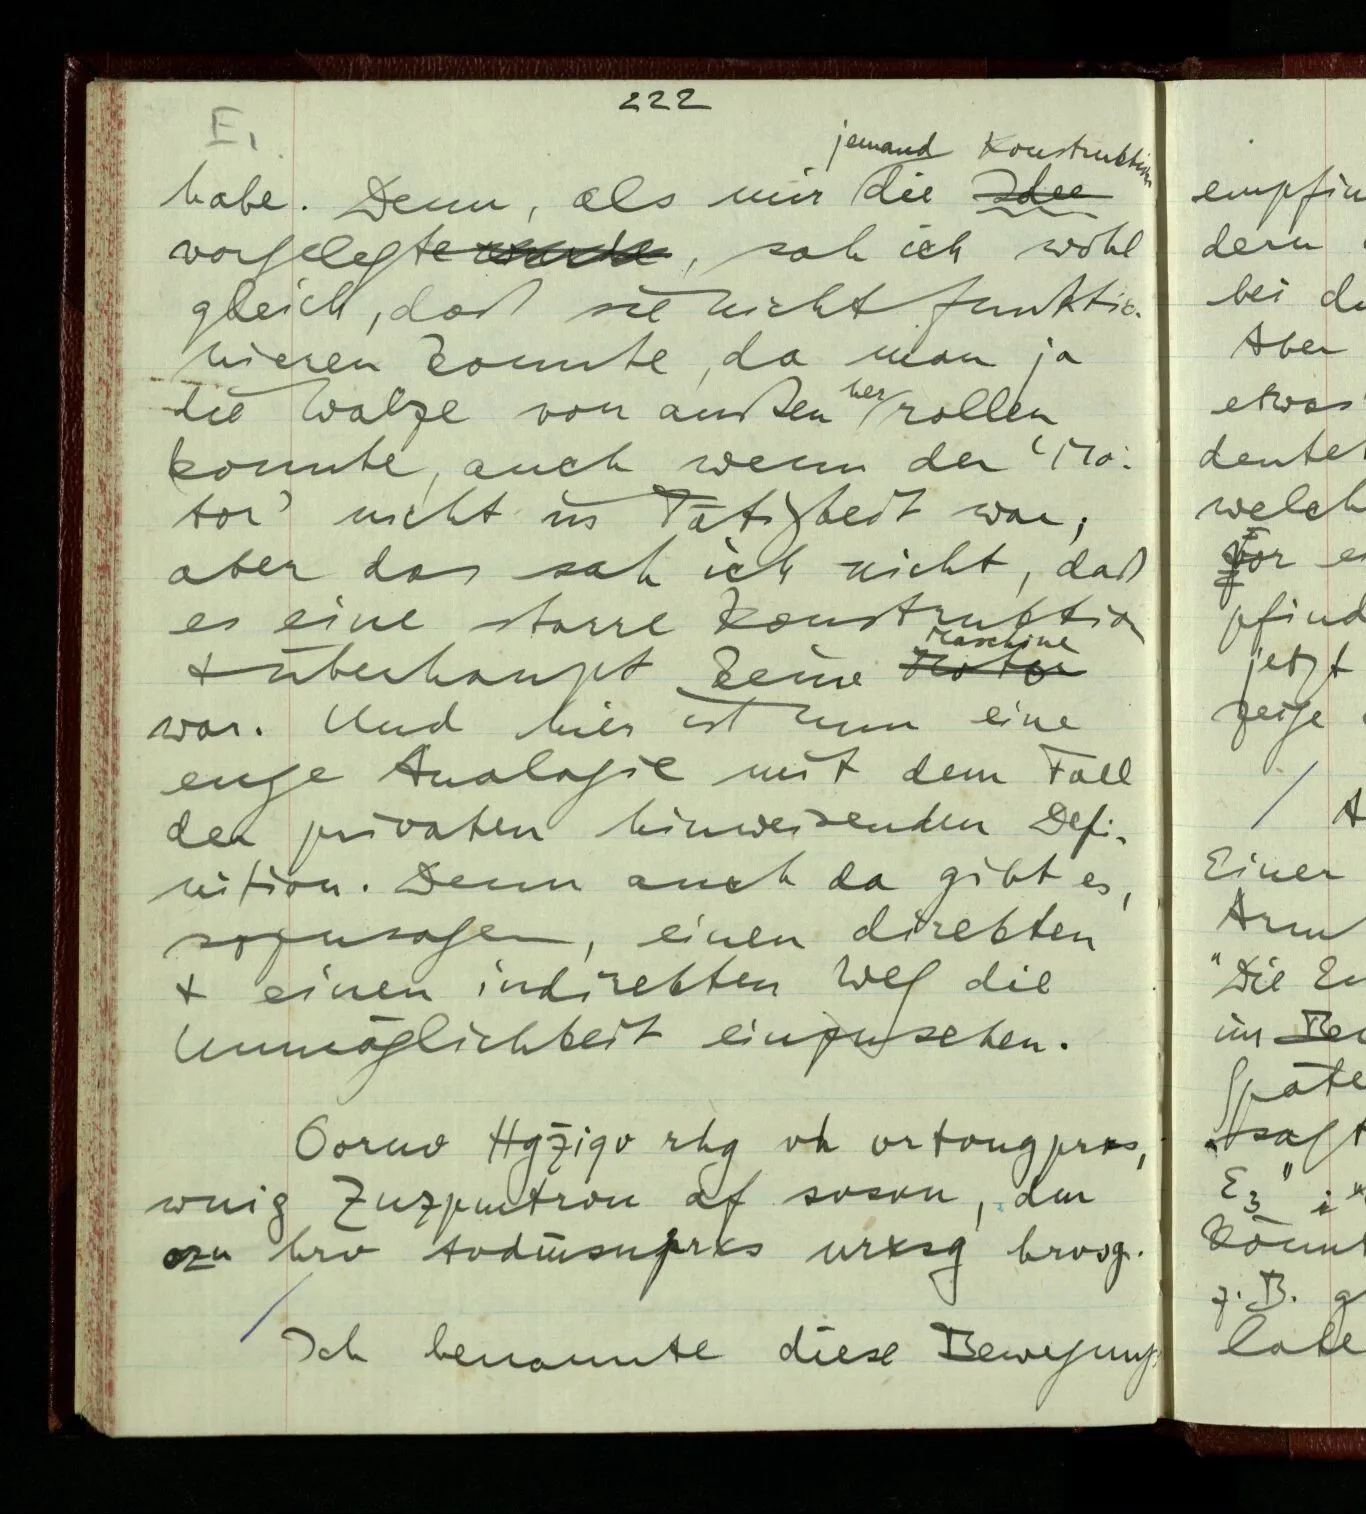 222
E₁
jemand Konstruktion
habe. Denn, als mir die Idee
vorgelegte wurde, sah ich wohl
gleich, daß sie nicht funktio-
nieren konnte, da man ja
die Walze von außen her rollen
konnte, auch wenn der 'Mo-
tor' nicht in Tätigkeit war;
aber das sah ich nicht, daß
es eine starre Konstruktion
+ überhaupt keine Motor Maschine
war. Und hier ist nun eine
enge Analogie mit dem Fall
der privaten hinweisenden Defi-
nition. Denn auch da gibt es,
sozusagen, einen direkten
+ einen indirekten Weg die
Unmöglichkeit einzusehen.
rhg vh
af
hrv
Ich benannte diese Bewegung
empfin
dern
bei
Aber
etwas
deutet
welch
pfind
jetzt
zeige
Einer
Arm
"Die
im
Späte
sagt
E₃"
könnt
z. B.